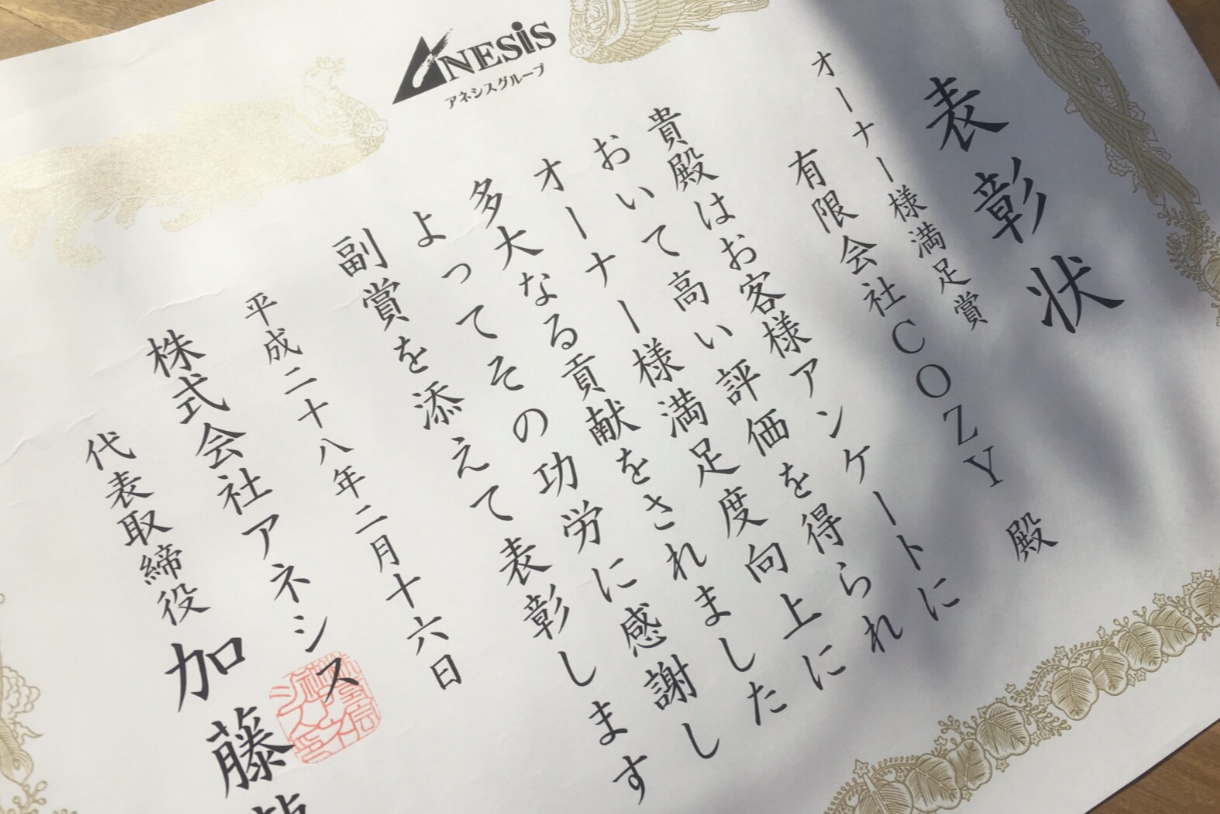 ANESiS
アネシスグループ
表彰状
オーナー様満足賞
有限会社COZY 殿
貴殿はお客様アンケートに
おいて高い評価を得られ
オーナー様満足度向上に
多大なる貢献をされました
よってその功労に感謝し
副賞を添えて表彰します
平成二十八年二月十六日
株式会社アネシス
代表取締役 加藤